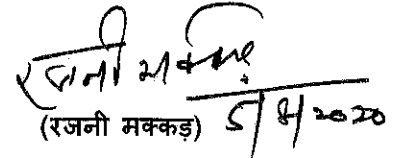 रजनी मक्कड़
(रजनी मक्कड़) 5/8/2020